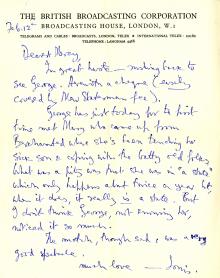 THE BRITISH BROADCASTING CORPORATION
BROADCASTING HOUSE, LONDON, W.1
TELEGRAMS AND CABLES: BROADCASTS, LONDON, TELEX ★ INTERNATIONAL TELEX
TELEPHONE: LANGHAM 4468
Feb. 12
Dearest
In great haste – rushing back to
see George, & with a cheque (
caused by New Statesman fee).
George has just today for the first
time met Mary who came up from
where she's been tending her
sick son & coping with the batty old folks.
What a pity was that she was in "a state"
which only happens about twice a year but
when it does, it really is a state. But
I don't think George, not knowing her,
noticed it so much.
The match, though sad, was a very
good spectacle.
much love